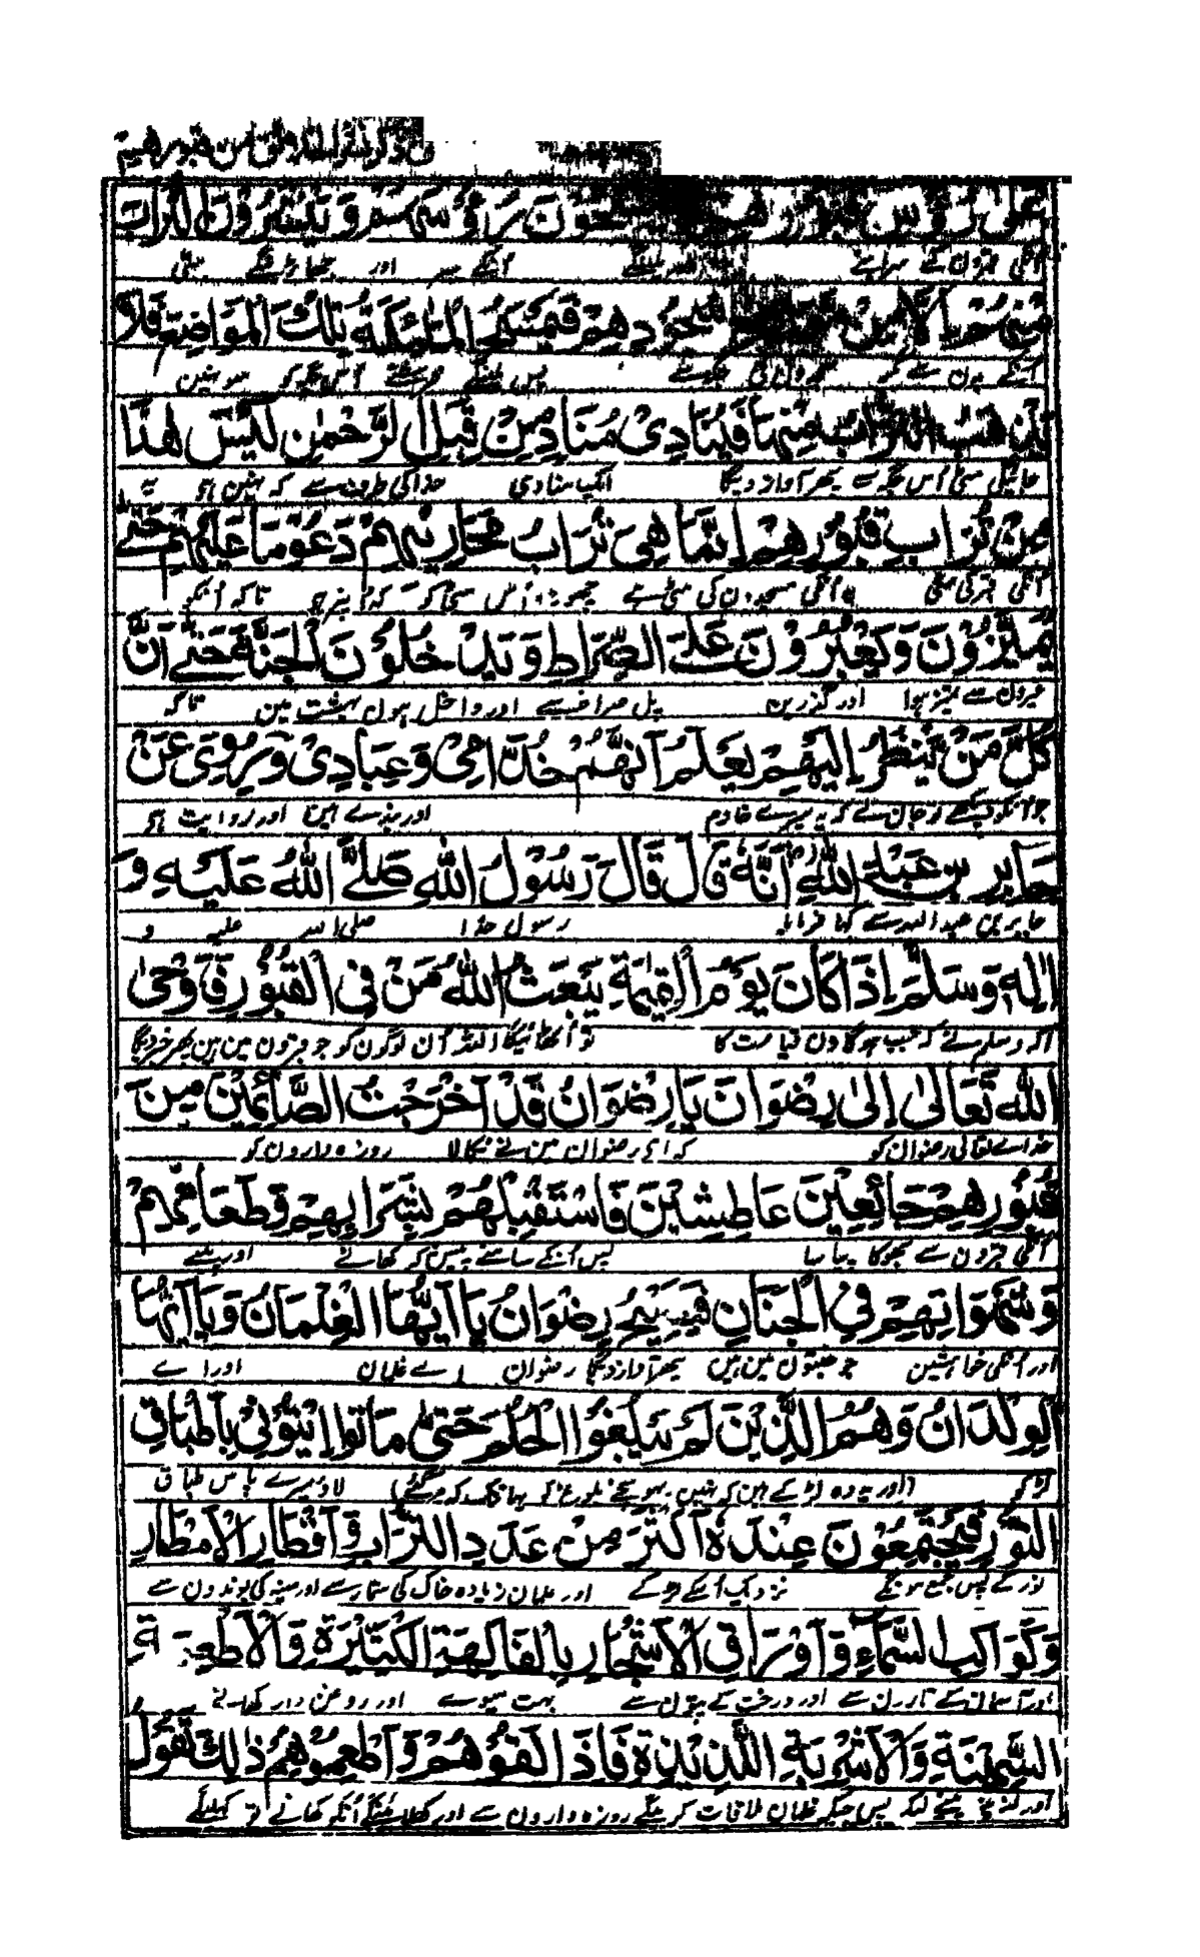 من قبورهم
على رؤس قبورهم رُؤُسَهُمْ وَيَنْثُرُونَ التُّرَابَ
انکی قبرون کے سرہانے انکے سر اور مٹی
فَيَمْسَحُ الْمَلٰئِكَةُ تِلْكَ الْمَوَاضِعَ فَلَا
پس فرشتے اس جگہ کو سو نہین
يَذْهَبُ التُّرَابُ مِنْهَا فَيُنَادِىْ مُنَادٍ مِنْ قِبَلِ الرَّحْمٰنِ لَيْسَ هٰذَا
جائیگی مٹی اس جگہ سے پھر آواز دیگا ایک منادی خدا کی طرف سے کہ نہین ہے یہ
مِنْ تُرَابِ قُبُوْرِهِمْ اِنَّمَا هِىَ تُرَابُ مَحَارِيْبِهِمْ دَعُوْ مَا عَلَيْهِمْ حَتّٰى
انکی قبر کی مٹی یہ انکی مسجدون کی مٹی ہے چھوڑو تاکہ انکو
يُمَيَّزُوْنَ وَيَعْبُرُوْنَ عَلَى الصِّرَاطِ وَيَدْخُلُوْنَ الْجَنَّةَ حَتّٰى اَنَّ
غیرون سے تمیز ہو اور گذرین پل صراط سے اور داخل ہون بہشت مین تاکہ
كُلَّ مَنْ يَنْظُرُ اِلَيْهِمْ يَعْلَمُ اَنَّهُمْ خُدَّامِىْ وَعِبَادِىْ وَرُوِىَ عَنْ
جو انکو دیکھے تو جان لے کہ یہ میرے خادم اور بندے ہین اور روایت ہے
جَابِرِ بْنِ عَبْدِ اللهِ اَنَّهٗ قَالَ قَالَ رَسُوْلُ اللهِ صَلَّى اللهُ عَلَيْهِ وَ
جابر بن عبد اللہ سے کہا فرمایا رسول خدا صلی اللہ علیہ و
اٰلِهٖ وَسَلَّمَ اِذَا كَانَ يَوْمُ الْقِيٰمَةِ يَبْعَثُ اللهُ مَنْ فِى الْقُبُوْرِ فَاَوْحٰى
آلہ وسلم نے کہ جب ہوگا دن قیامت کا تو اٹھائیگا اللہ ان لوگون کو جو قبرون مین ہین پھر خبر دیگا
اللهُ تَعَالٰى اِلٰى رِضْوَانَ يَا رِضْوَانُ قَدْ اَخْرَجْتُ الصَّائِمِيْنَ مِنْ
خدا ے تعالی رضوان کو کہ اے رضوان مین نے نکالا روزہ دارون کو
قُبُوْرِهِمْ جَائِعِيْنَ عَاطِشِيْنَ فَاسْتَقْبِلْهُمْ بِشَرَابِهِمْ وَطَعَامِهِمْ
انکی قبرون سے بھوکا پیاسا پس انکے سامنے پیش کر کھانے اور پینے
وَشَهَوَاتِهِمْ فِى الْجِنَانِ فَيَصِيْحُ رِضْوَانُ يَا اَيُّهَا الْغِلْمَانُ وَيَا اَيُّهَا
اور انکی خواہشین جو جنتون مین ہین پھر آواز دیگا رضوان اے غلمان اور اے
الْوِلْدَانُ وَهُمُ الَّذِيْنَ لَمْ يَبْلُغُوا الْحُلُمَ حَتّٰى مَاتُوا اِيْتُوْنِىْ بِاَطْبَاقِ
لڑکو (اور یہ وہ لڑکے ہین کہ نہین پہونچے بلوغ کو یہانتک کہ مرگئے) لاؤ میرے پاس طباق
النُّوْرِ فَيَجْتَمِعُوْنَ عِنْدَهٗ اَكْثَرَ مِنْ عَدَدِ التُّرَابِ وَاَقْطَارِ الْاَمْطَارِ
نور کے پس جمع ہونگے نزدیک اسکے لڑکے اور غلمان زیادہ خاک کی شمار سے اور مینہ کی بوندون سے
وَكَوَاكِبِ السَّمَاءِ وَاَوْرَاقِ الْاَشْجَارِ بِالْفَاكِهَةِ الْكَثِيْرَةِ وَالْاَطْعِمَةِ
اور آسمان کے تارون سے اور درخت کے پتون سے بہت میوے اور روغن دار کھانے
السَّمِيْنَةِ وَالْاَشْرِبَةِ اللَّذِيْذَةِ فَاِذَا لَقُوْهُمْ وَاَطْعَمُوْهُمْ ذٰلِكَ تَقُوْلُ
اور لذیذ پس جبکہ غلمان ملاقات کرینگے روزہ دارون سے اور کھلائینگے انکو کھانے تو کہینگے